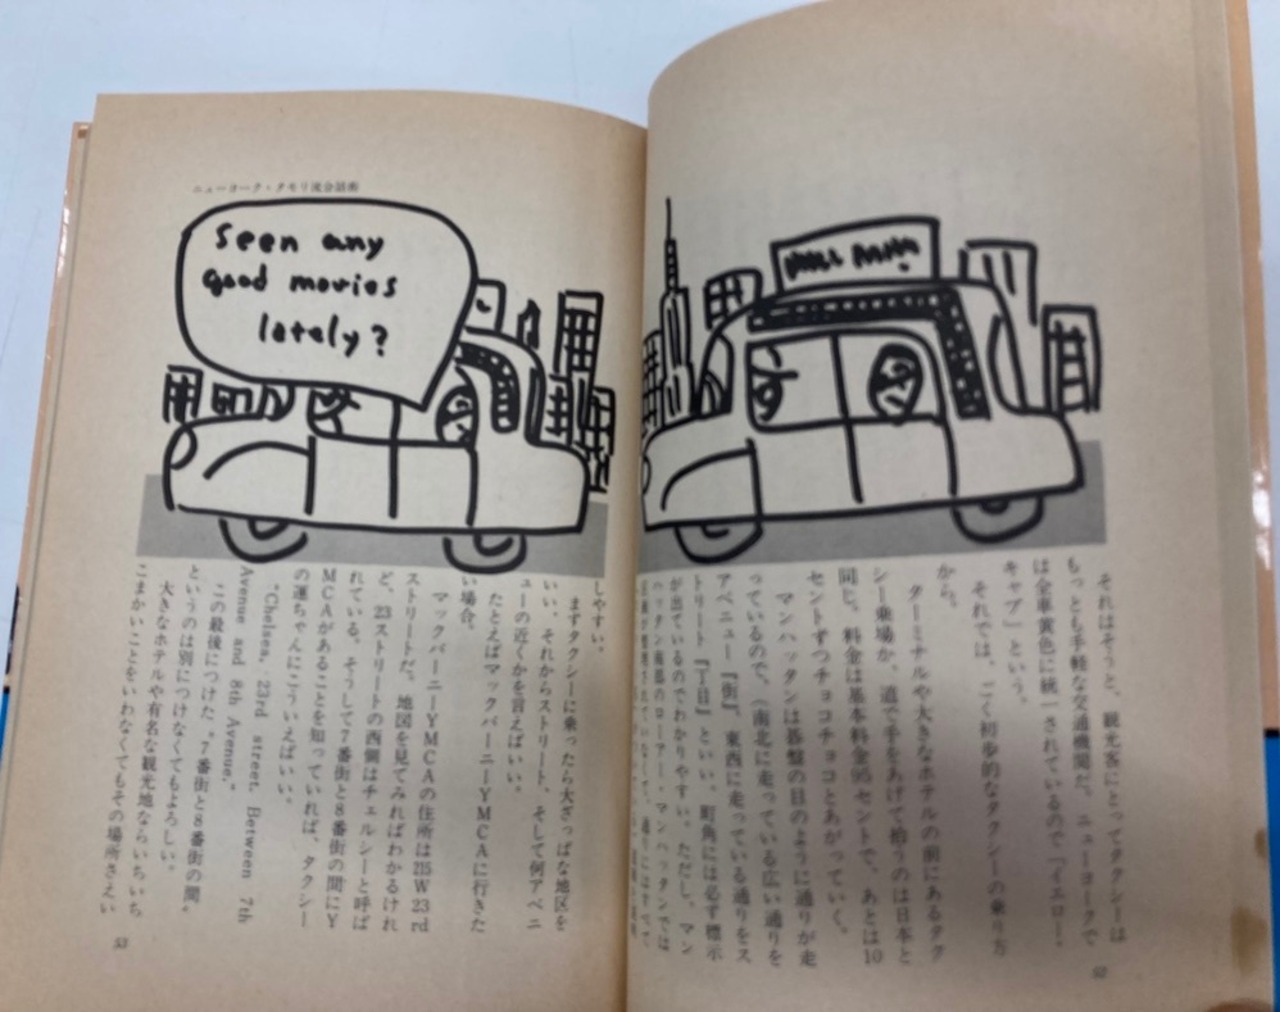 それはそうと、観光客にとってタクシーは
もっとも手軽な交通機関だ。ニューヨークで
は全車黄色に統一されているので『イエロー・
キャブ』という。
それでは、ごく初歩的なタクシーの乗り方
から。
ターミナルや大きなホテルの前にあるタク
シー乗場か、道で手をあげて拾うのは日本と
同じ。料金は基本料金95セントで、あとは10
セントずつチョコチョコとあがっていく。
マンハッタンは碁盤の目のように通りが走
っているので、(南北に走っている広い通りを
アベニュー『街』、東西に走っている通りをス
トリート『丁目』といい、町角には必ず標示
が出ているのでわかりやすい。ただし、マン
ハッタン南部のローアー・マンハッタンでは
52
ニューヨーク・タモリ流会話術
Seen any
good movies
lately?
しやすい。
まずタクシーに乗ったら大ざっぱな地区を
いい、それからストリート、そして何アベニ
ューの近くかを言えばいい。
たとえばマックバーニーYMCAに行きた
い場合。
マックバーニーYMCAの住所は215W 23rd
ストリートだ。地図を見てみればわかるけれ
ど、23ストリートの西側はチェルシーと呼ば
れている。そうして7番街と8番街の間にY
MCAがあることを知っていれば、タクシー
の運ちゃんにこういえばいい。
"Chelsea, 23rd street. Between 7th
Avenue and 8th Avenue."
この最後につけた"7番街と8番街の間"
というのは別につけなくてもよろしい。
大きなホテルや有名な観光地ならいちいち
こまかいことをいわなくてもその場所さえい
53